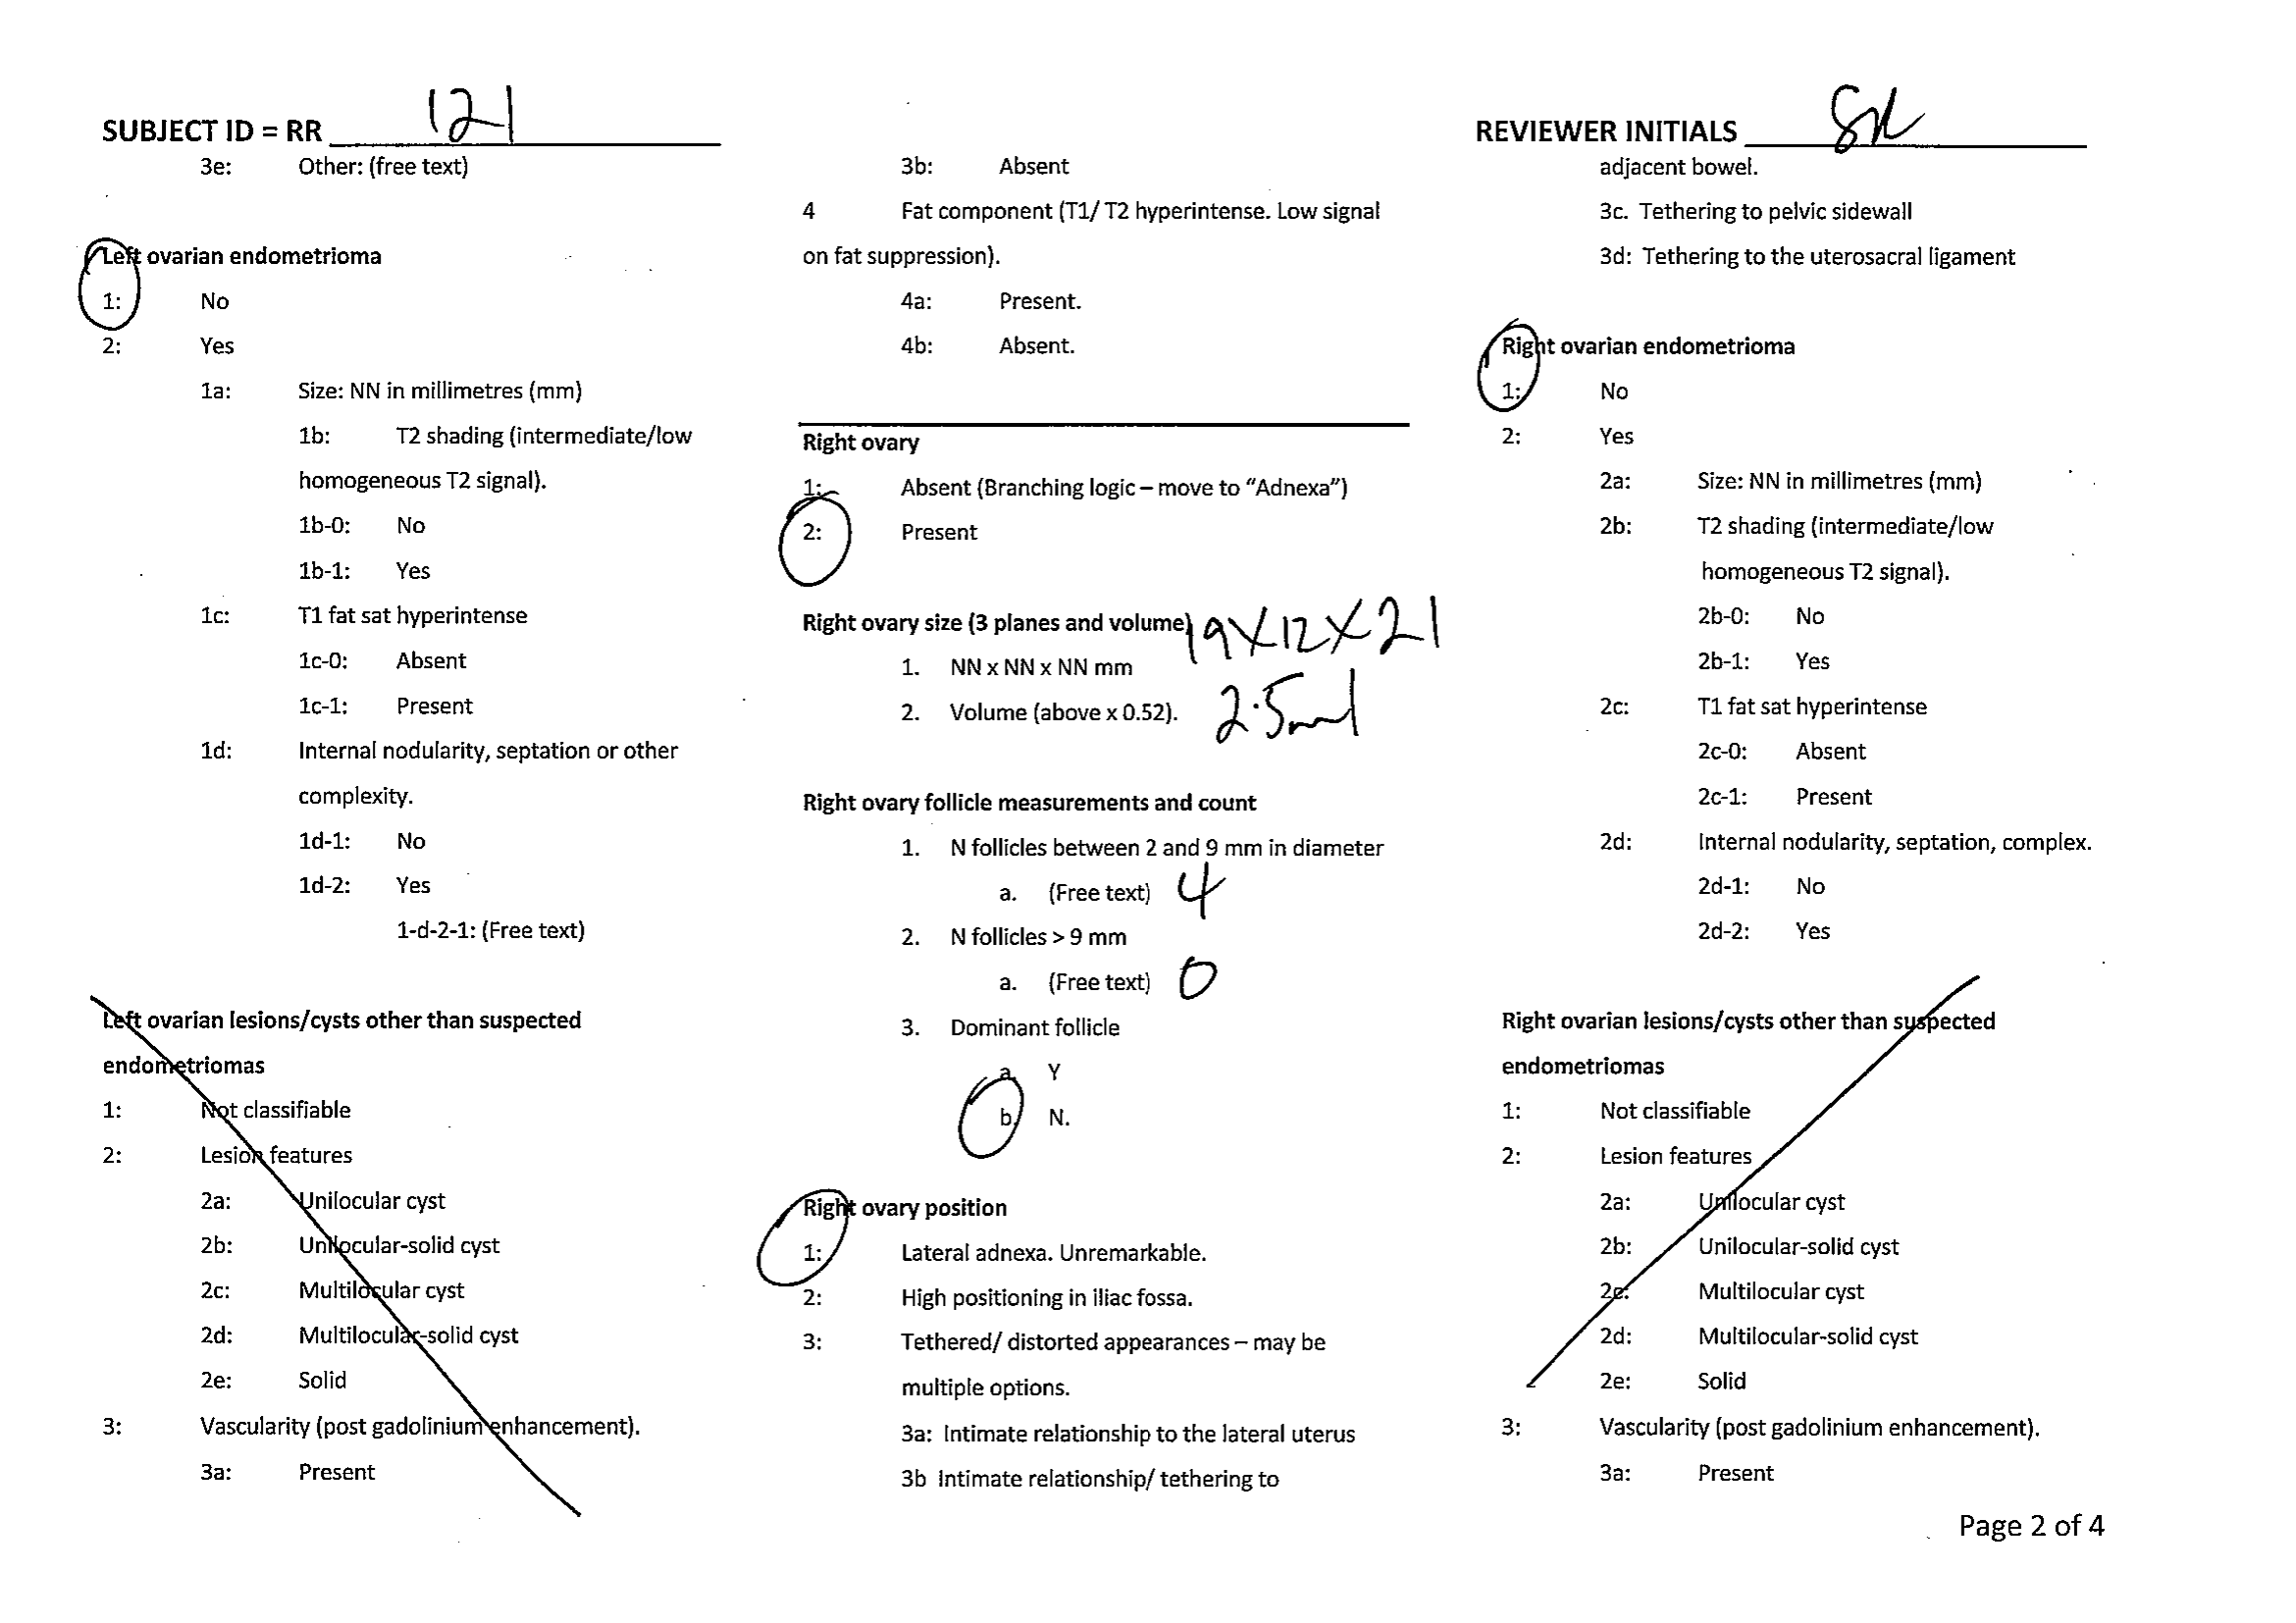 SUBJECT ID = RR 121
3e: Other: (free text)
Left ovarian endometrioma
1: No
2: Yes
1a: Size: NN in millimetres (mm)
1b: T2 shading (intermediate/low
homogeneous T2 signal).
1b-0: No
1b-1: Yes
1c: T1 fat sat hyperintense
1c-0: Absent
1c-1: Present
1d: Internal nodularity, septation or other
complexity.
1d-1: No
1d-2: Yes
1-d-2-1: (Free text)
Left ovarian lesions/cysts other than suspected
endometriomas
1: Not classifiable
2: Lesion features
2a: Unilocular cyst
2b: Unilocular-solid cyst
2c: Multilocular cyst
2d: Multilocular-solid cyst
2e: Solid
3: Vascularity (post gadolinium enhancement).
3a: Present
3b: Absent
4 Fat component (T1/ T2 hyperintense. Low signal
on fat suppression).
4a: Present.
4b: Absent.
Right ovary
1: Absent (Branching logic – move to “Adnexa”)
2: Present
Right ovary size (3 planes and volume) 19X12X21
1. NN x NN x NN mm
2. Volume (above x 0.52). 2.5ml
Right ovary follicle measurements and count
1. N follicles between 2 and 9 mm in diameter
a. (Free text) 4
2. N follicles > 9 mm
a. (Free text) 0
3. Dominant follicle
a. Y
b. N.
Right ovary position
1: Lateral adnexa. Unremarkable.
2: High positioning in iliac fossa.
3: Tethered/ distorted appearances – may be
multiple options.
3a: Intimate relationship to the lateral uterus
3b Intimate relationship/ tethering to
REVIEWER INITIALS
adjacent bowel.
3c. Tethering to pelvic sidewall
3d: Tethering to the uterosacral ligament
Right ovarian endometrioma
1: No
2: Yes
2a: Size: NN in millimetres (mm)
2b: T2 shading (intermediate/low
homogeneous T2 signal).
2b-0: No
2b-1: Yes
2c: T1 fat sat hyperintense
2c-0: Absent
2c-1: Present
2d: Internal nodularity, septation, complex.
2d-1: No
2d-2: Yes
Right ovarian lesions/cysts other than suspected
endometriomas
1: Not classifiable
2: Lesion features
2a: Unilocular cyst
2b: Unilocular-solid cyst
2c: Multilocular cyst
2d: Multilocular-solid cyst
2e: Solid
3: Vascularity (post gadolinium enhancement).
3a: Present
Page 2 of 4